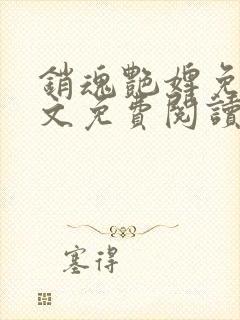 銷魂艷婢免
文免費閱讀
塞得